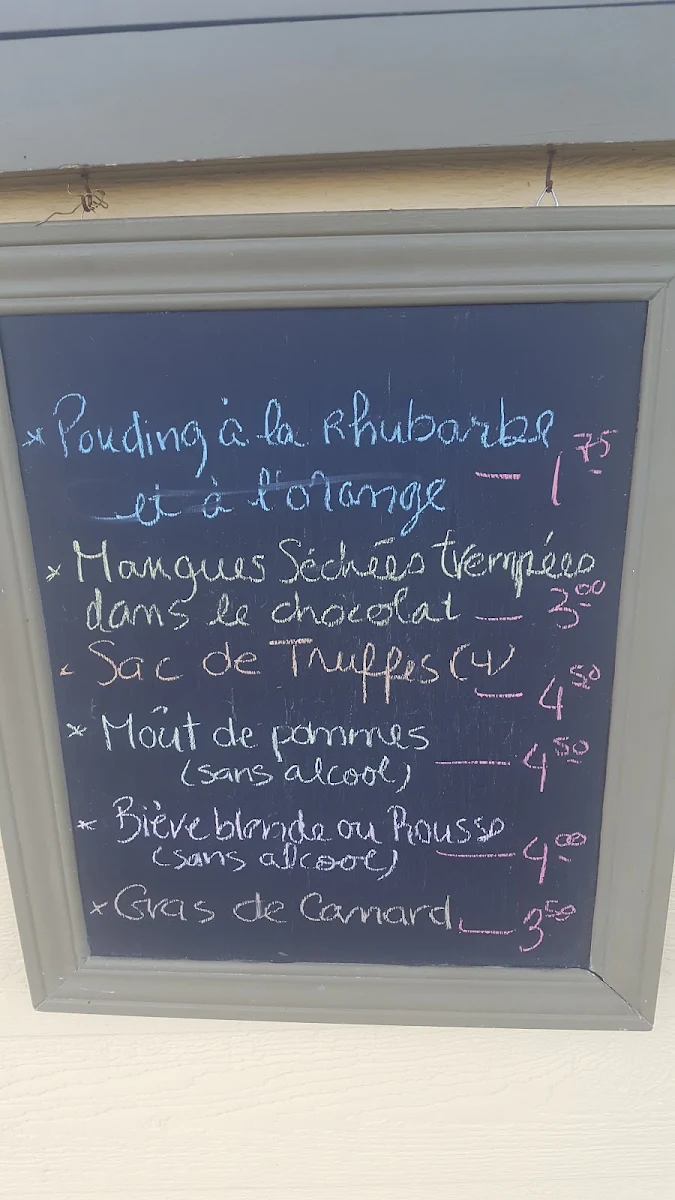 * Pouding à la Rhubarbe
et à l'orange — 1 75
* Mangues Séchées trempées
dans le chocolat — 3 00
* Sac de Truffes (4) — 4 50
* Moût de pommes
(sans alcool) — 4 50
* Bière blonde ou Rousse
(sans alcool) — 4 00
* Gras de Canard — 3 50